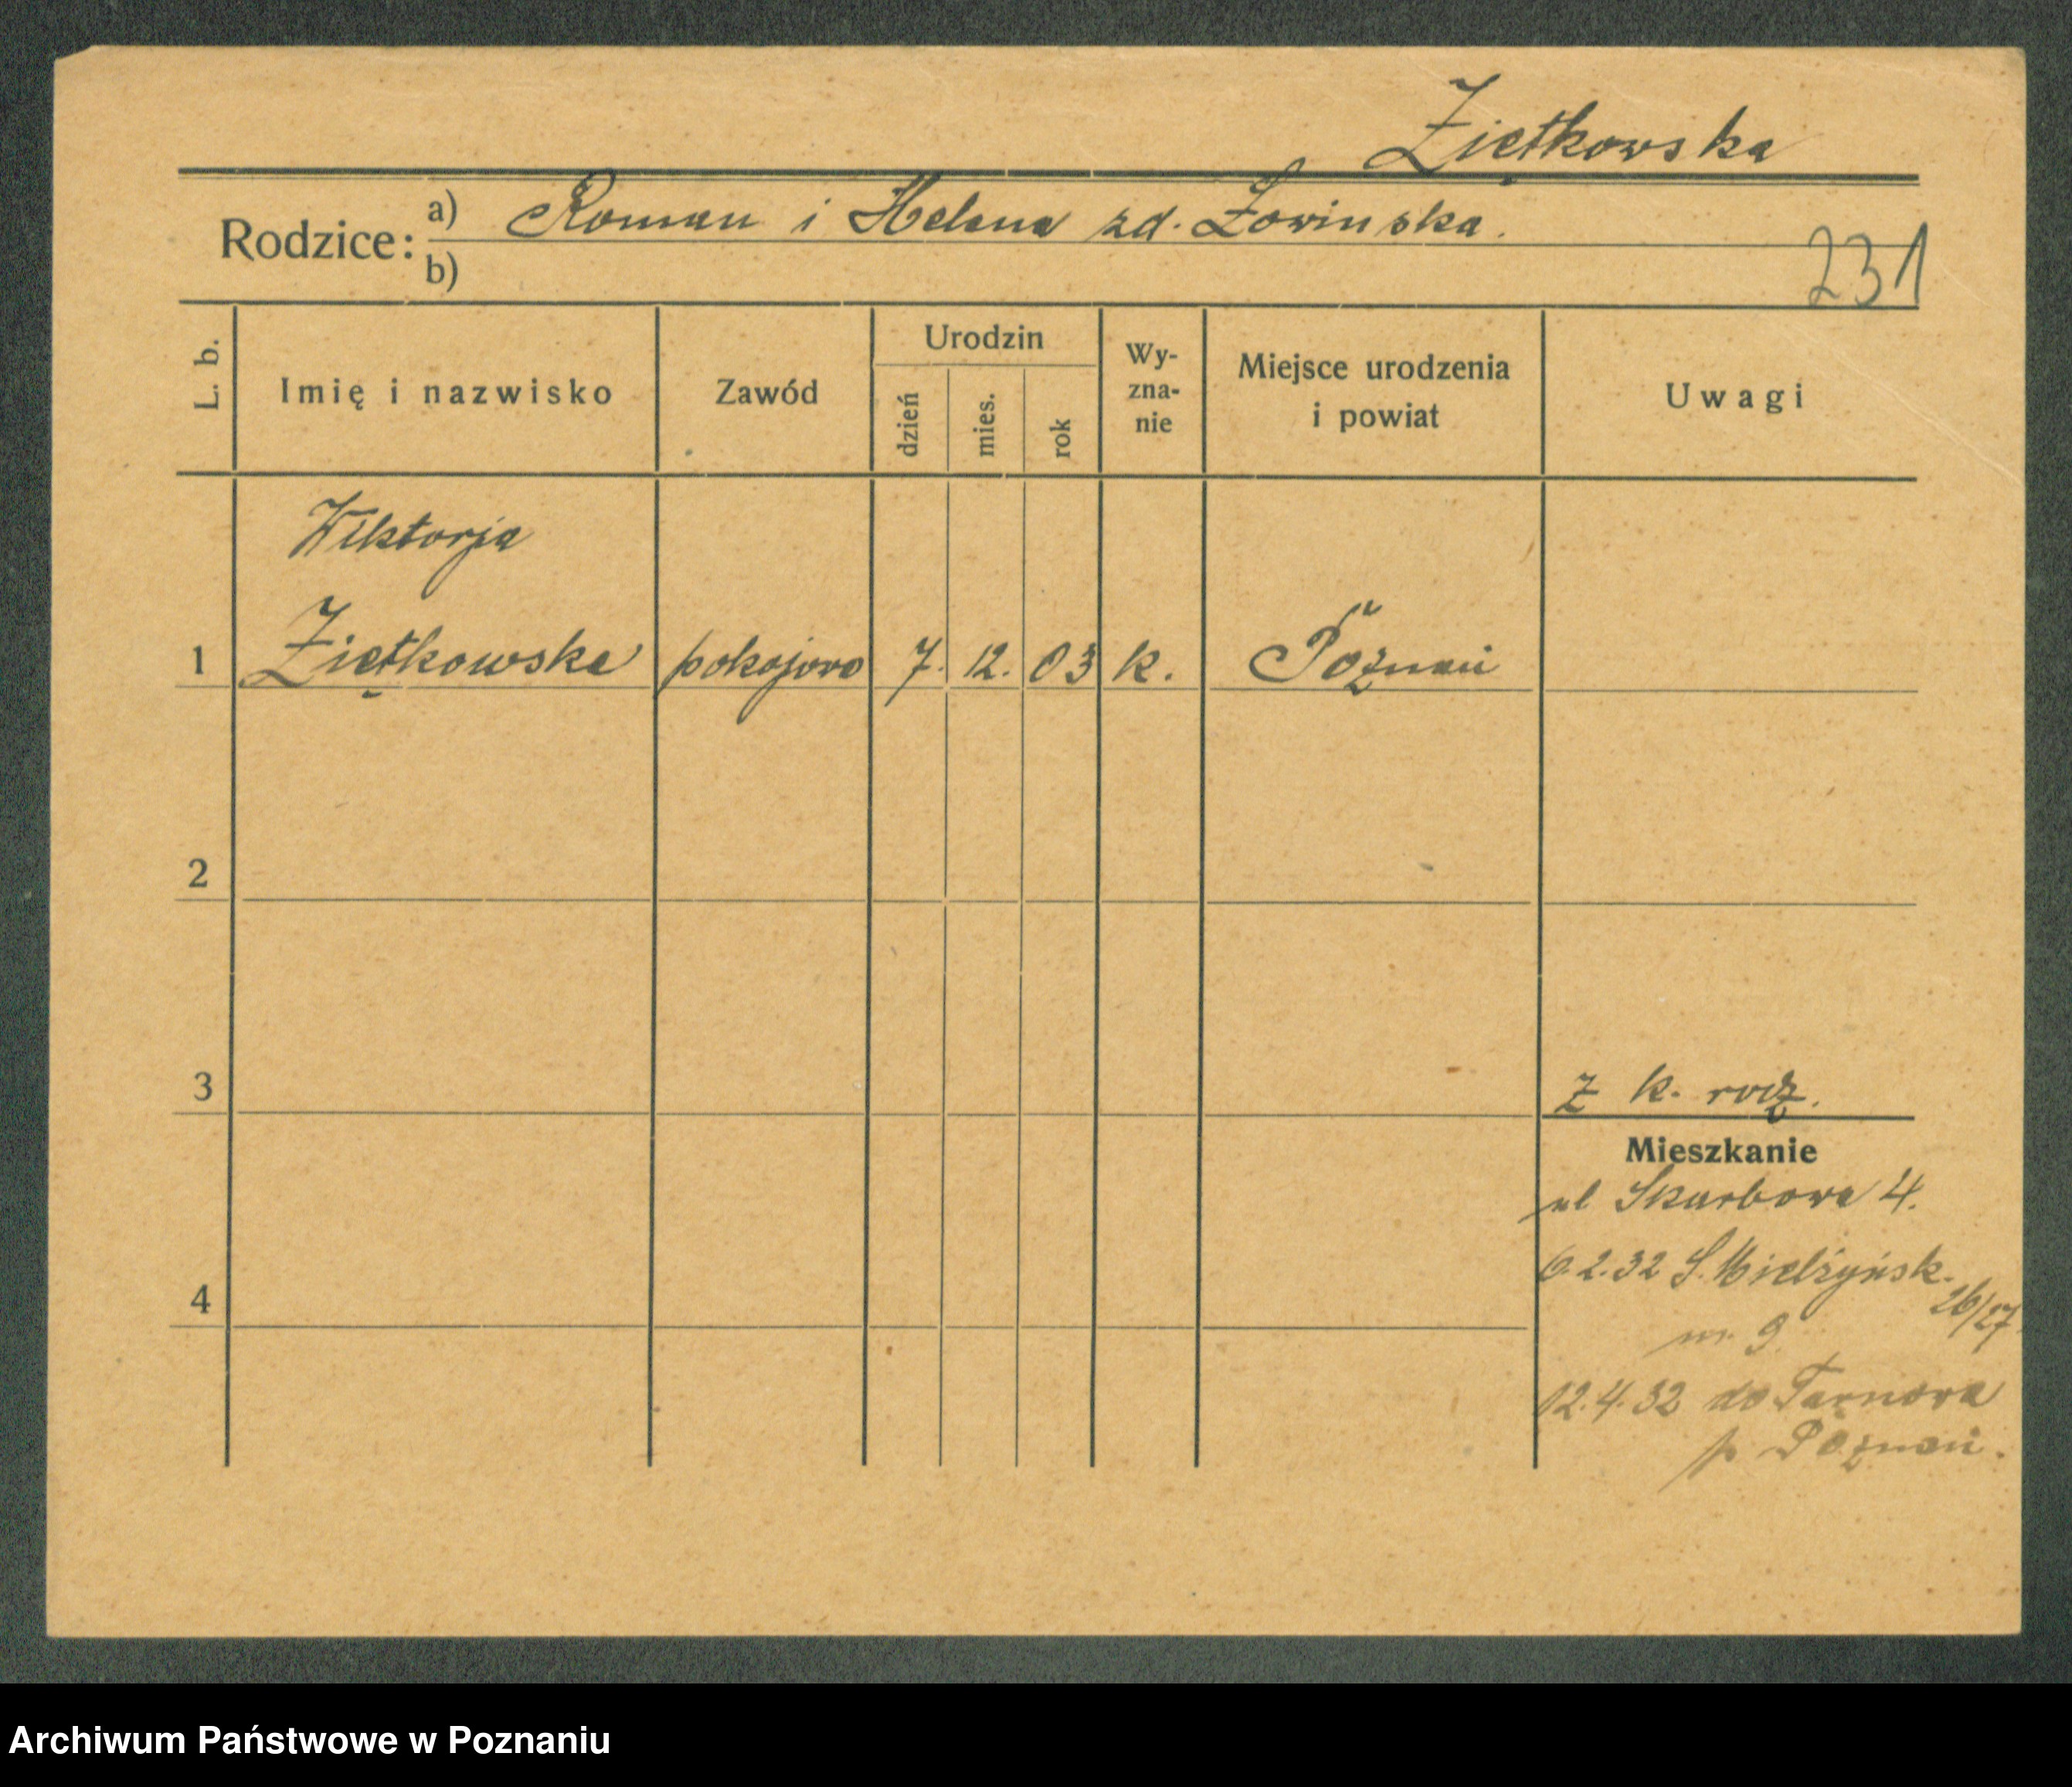 Ziętkowska
Rodzice: a) Roman i Helena zd. Łowinska.
b)
231
L. b. Imię i nazwisko Zawód Urodzin dzień mies. rok Wy-zna-nie Miejsce urodzenia i powiat Uwagi
Wiktorja
1 Ziętkowska pokojowa 7. 12. 03 k. Poznań
2
3 z k. rodz.
Mieszkanie
ul Skarbowa 4.
6.2.32 S. Mielżyńsk. 26/27
nr. 9
4
12.4.32 do Tarnowa
p Poznań.
Archiwum Państwowe w Poznaniu